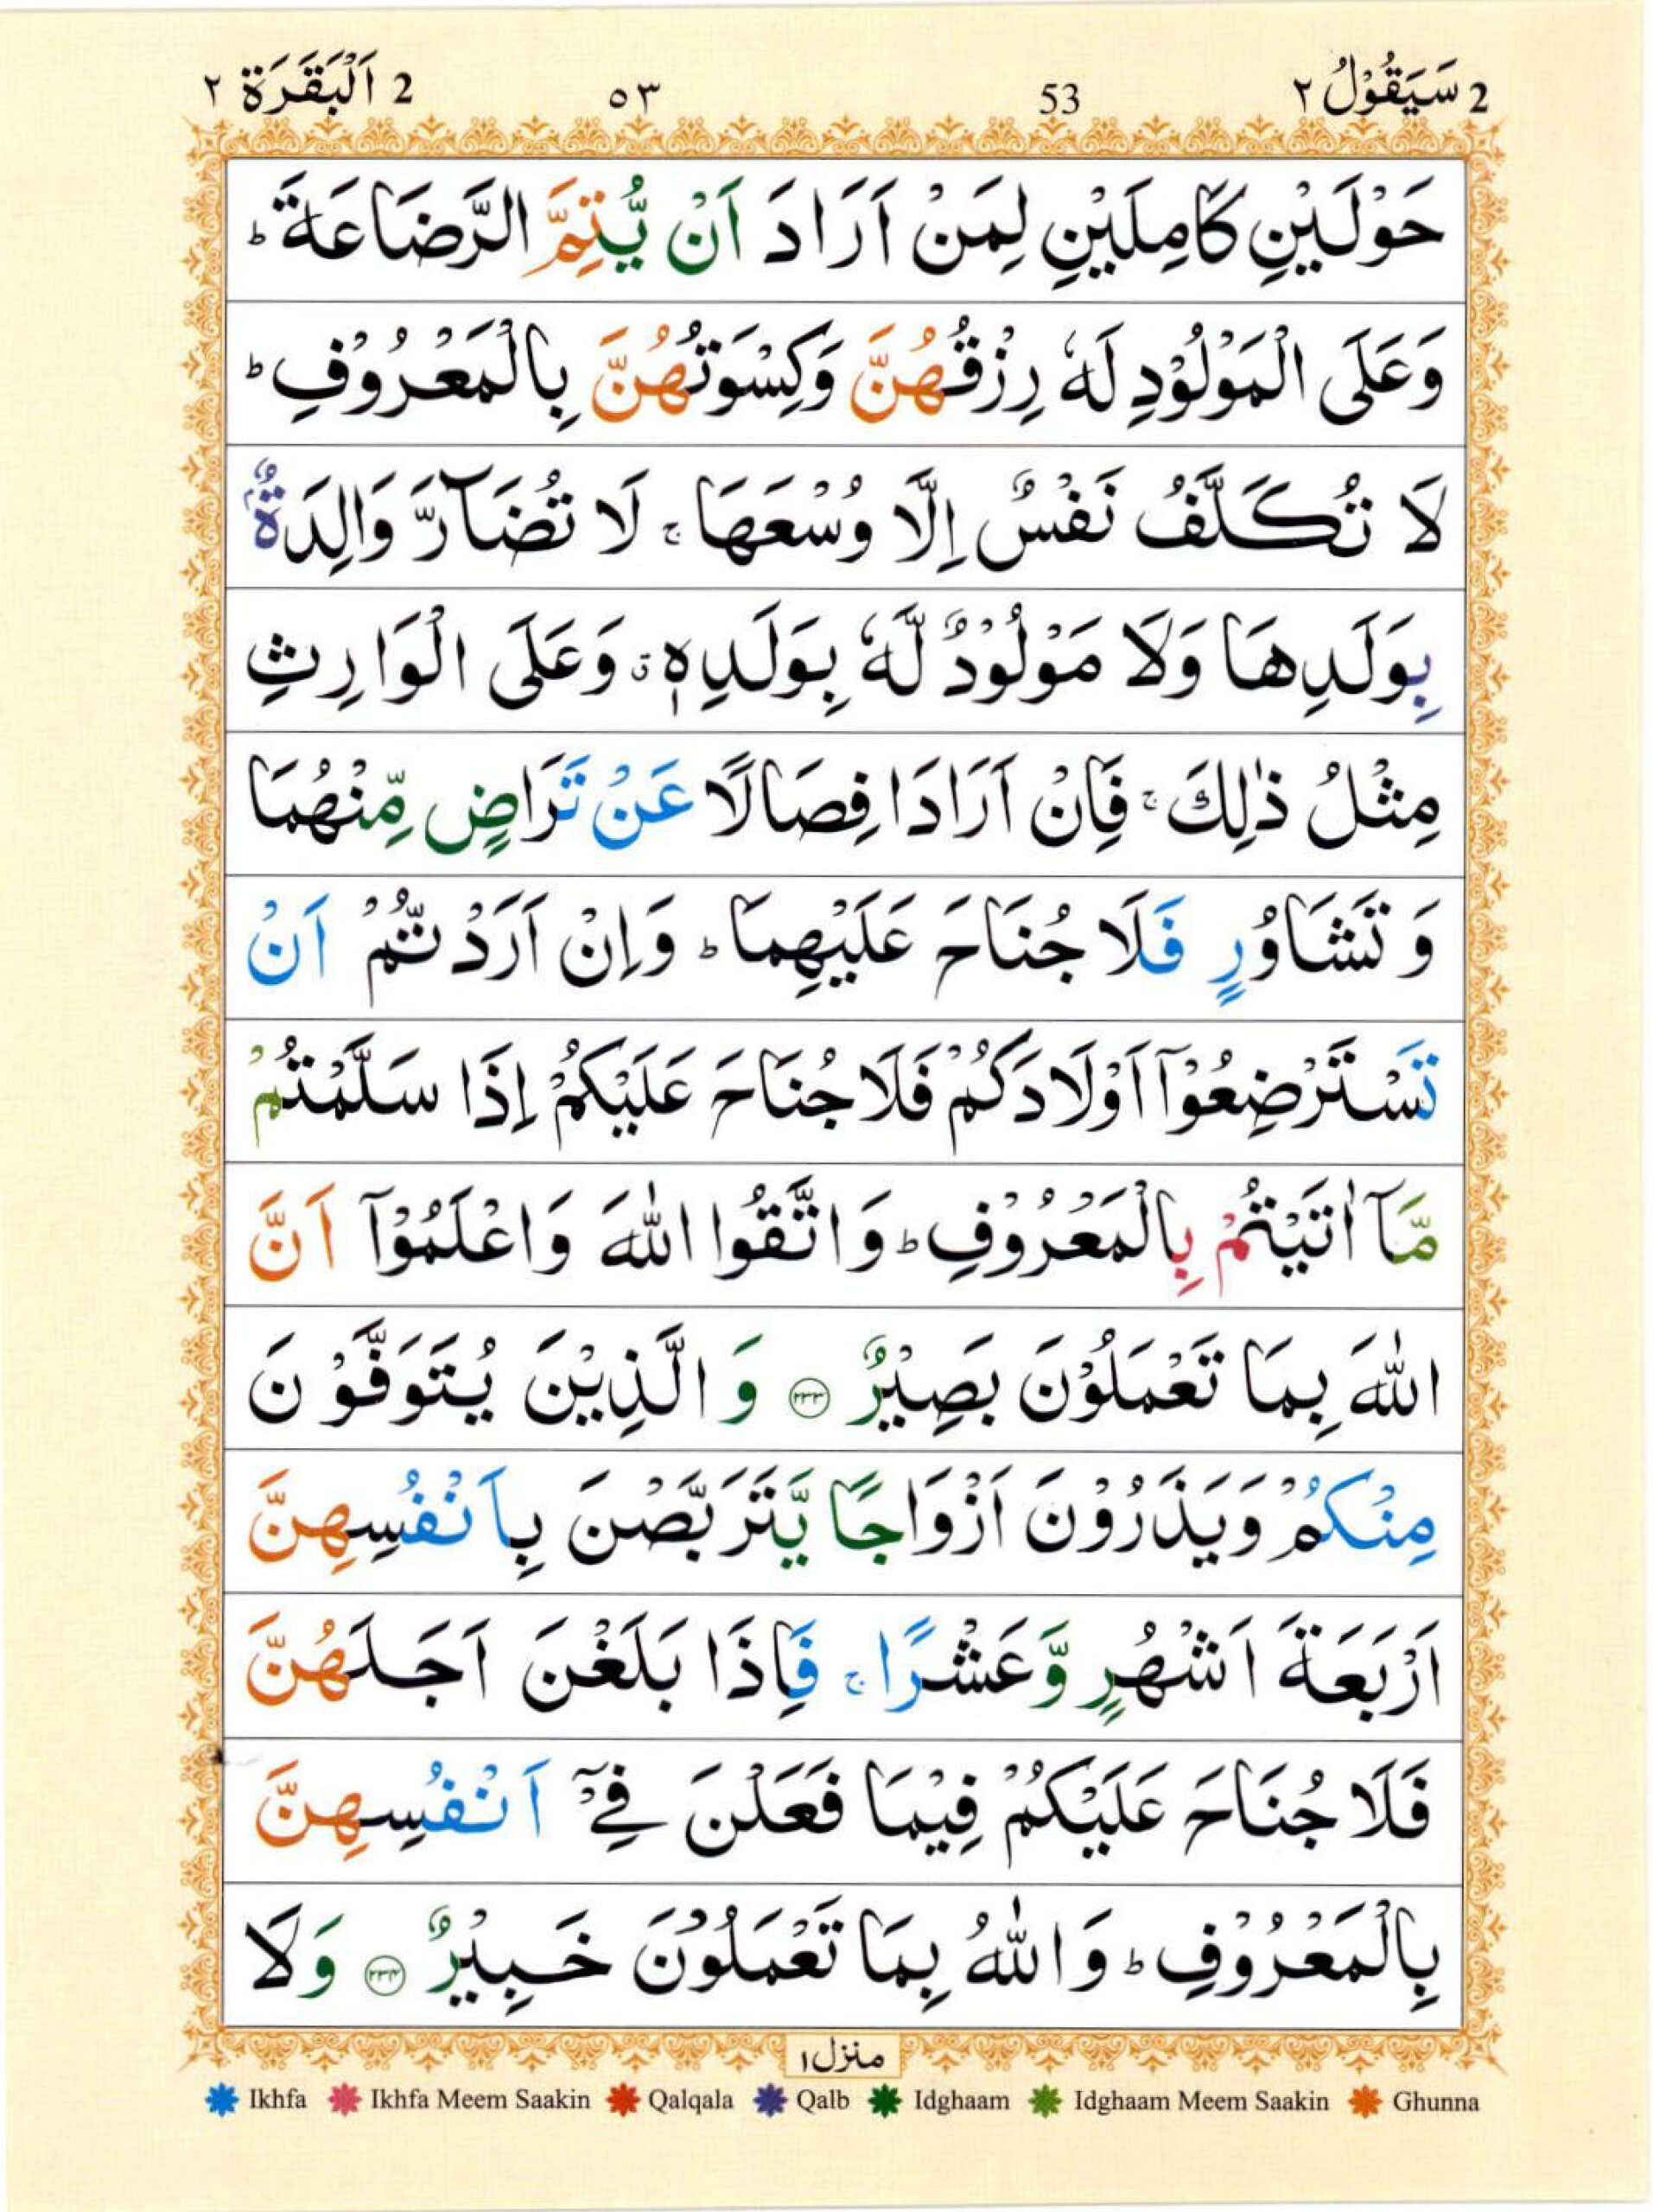 2 سَيَقُوْلُ ٢ 53 ٥٣ 2 اَلْبَقَرَة ٢
حَوْلَيْنِ كَامِلَيْنِ لِمَنْ اَرَادَ اَنْ يُّتِمَّ الرَّضَاعَةَ ؕ
وَعَلَى الْمَوْلُوْدِ لَهٗ رِزْقُهُنَّ وَكِسْوَتُهُنَّ بِالْمَعْرُوْفِ ؕ
لَا تُكَلَّفُ نَفْسٌ اِلَّا وُسْعَهَا ۚ لَا تُضَآرَّ وَالِدَةٌۢ
بِوَلَدِهَا وَلَا مَوْلُوْدٌ لَّهٗ بِوَلَدِهٖ ۗ وَعَلَى الْوَارِثِ
مِثْلُ ذٰلِكَ ۚ فَاِنْ اَرَادَا فِصَالًا عَنْ تَرَاضٍ مِّنْهُمَا
وَ تَشَاوُرٍ فَلَا جُنَاحَ عَلَيْهِمَا ؕ وَاِنْ اَرَدْتُّمْ اَنْ
تَسْتَرْضِعُوْٓا اَوْلَادَكُمْ فَلَا جُنَاحَ عَلَيْكُمْ اِذَا سَلَّمْتُمْ
مَّآ اٰتَيْتُمْ بِالْمَعْرُوْفِ ؕ وَاتَّقُوا اللّٰهَ وَاعْلَمُوْٓا اَنَّ
اللّٰهَ بِمَا تَعْمَلُوْنَ بَصِيْرٌ ۝٢٣٣ وَالَّذِيْنَ يُتَوَفَّوْنَ
مِنْكُمْ وَيَذَرُوْنَ اَزْوَاجًا يَّتَرَبَّصْنَ بِاَنْفُسِهِنَّ
اَرْبَعَةَ اَشْهُرٍ وَّعَشْرًا ۚ فَاِذَا بَلَغْنَ اَجَلَهُنَّ
فَلَا جُنَاحَ عَلَيْكُمْ فِيْمَا فَعَلْنَ فِيْٓ اَنْفُسِهِنَّ
بِالْمَعْرُوْفِ ؕ وَاللّٰهُ بِمَا تَعْمَلُوْنَ خَبِيْرٌ ۝٢٣٤ وَلَا
منزل ١
Ikhfa Ikhfa Meem Saakin Qalqala Qalb Idghaam Idghaam Meem Saakin Ghunna